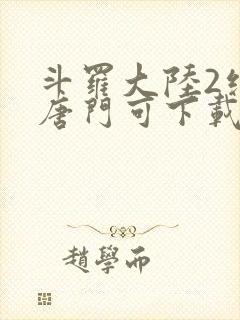 斗羅大陸2
唐門可下載
趙學而